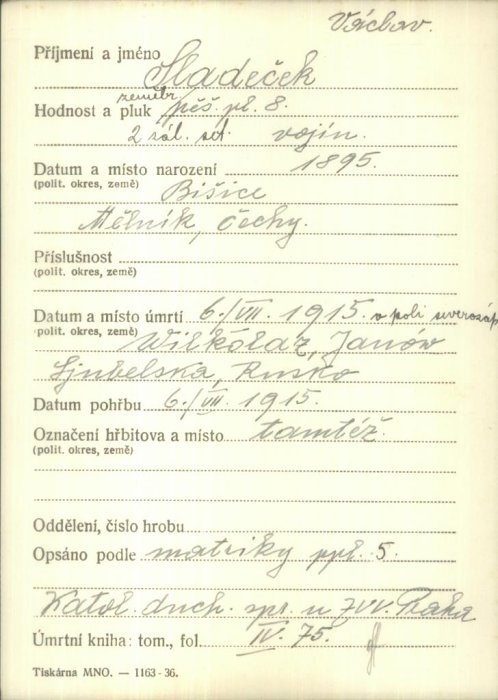 Václav.
Příjmení a jméno Sladeček
zeměbr.
Hodnost a pluk pěš. pl. 8.
2 zál. set. vojín.
Datum a místo narození 1895.
(polit. okres, země) Bišice
Mělník, Čechy.
Příslušnost
(polit. okres, země)
Datum a místo úmrtí 6./VII. 1915. v poli
(polit. okres, země) Wilkolaz, Janów
Ljubelska, Rusko
Datum pohřbu 6./VII. 1915.
Označení hřbitova a místo tamtéž.
(polit. okres, země)
Oddělení, číslo hrobu
Opsáno podle matriky ppl. 5.
Katol. duch. spr. u ZVV. Praha
Úmrtní kniha: tom., fol. IV. 75.
Tiskárna MNO. — 1163-36.